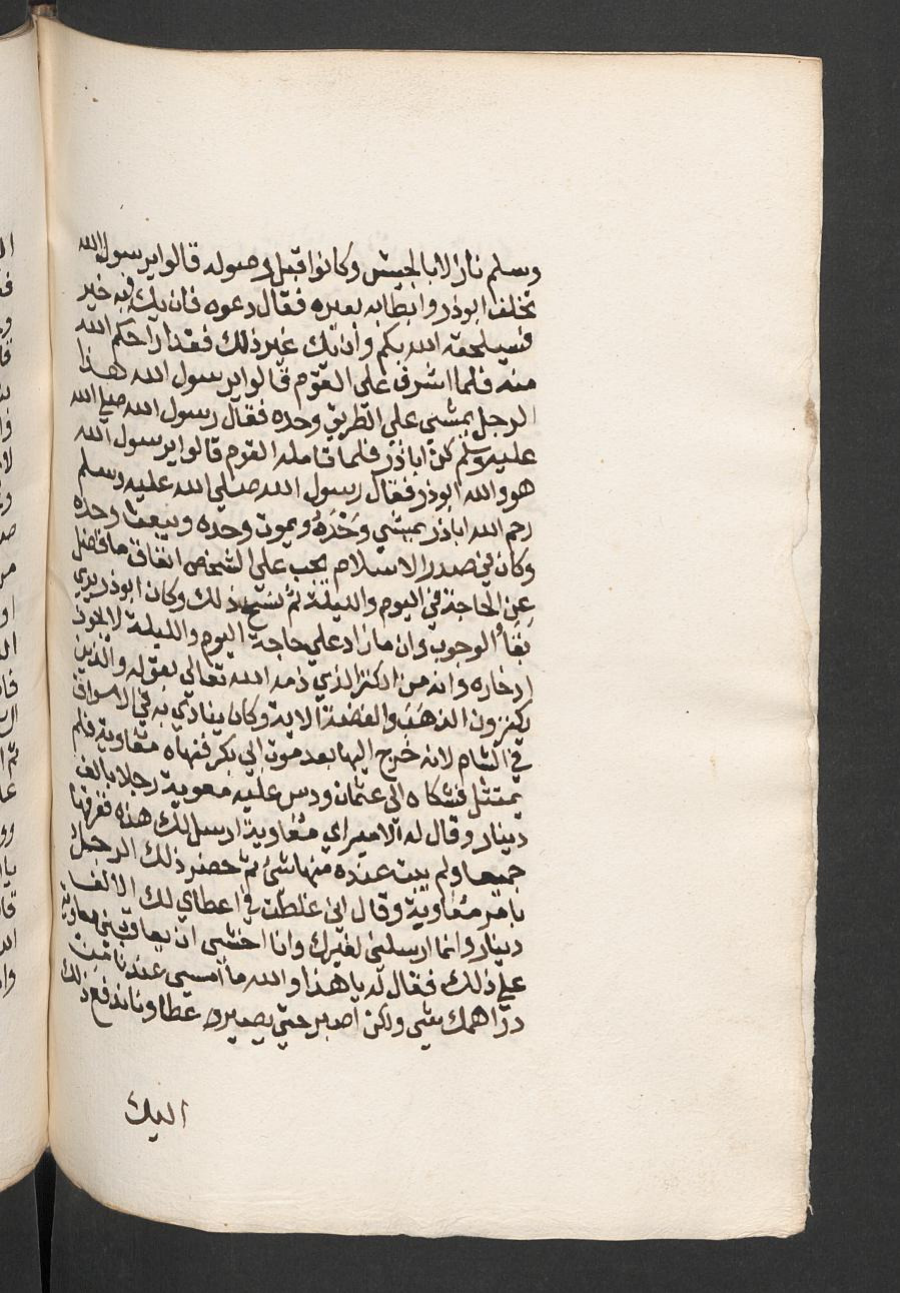 وسلم نازلا بالجيش وكانوا قبل وصوله قالوا يرسول الله
تخلف ابوذر وابطابه بعيره فقال دعوه فان يك فيه خير
فسيلحقه الله بكم وان يك غير ذلك فقد اراحكم الله
منه فلما اشرف على القوم قالوا يرسول الله هذا
الرجل يمشي على الطريق وحده فقال رسول الله صلي الله
عليه وسلم كن اباذر فلما تامله القوم قالوا يرسول الله
هو والله ابوذر فقال رسول الله صلي الله عليه وسلم
رحم الله اباذر يمشي وَحْدَهُ ويموت وحده ويبعث وحده
وكان في صدر الاسلام يجب علي الشخص انفاق ما فضل
عن الحاجة في اليوم والليلة ثم نسخ ذلك وكان ابوذر يري
بقاء الوجوب وان مازاد علي حاجة اليوم والليلة لا يجوز
ادخاره وانه من الكنز الذي ذمه الله تعالي بقوله والذين
يكنزون الذهب والفضة الاية وكان ينادي به في الاسواق
في الشام لانه خرج اليها بعد موت ابي بكر فنهاه معاوية فلم
يمتثل فشكاه الي عثمان ودس عليه معوية رجلا بالف
دينار وقال له الامير اي معاوية ارسل لك هذه ففرقها
جميعا ولم يبت عنده منها شئ ثم حضر ذلك الرجل
بامر معاوية وقال اني غلطت في اعطاي لك الالف
دينار وانما ارسلني لغيرك وانا اخشي ان يعاقبني معاوية
علي ذلك فقال له يا هذا والله ما امسي عندنا من
دراهمك شي ولكن اصبر حتي يصير عطاونا ندفع ذلك
اليك